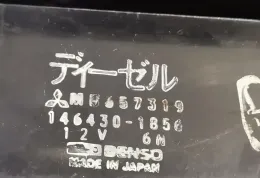 ディーゼル
MH657319
146430-1856
12V 6M
DENSO
MADE IN JAPAN